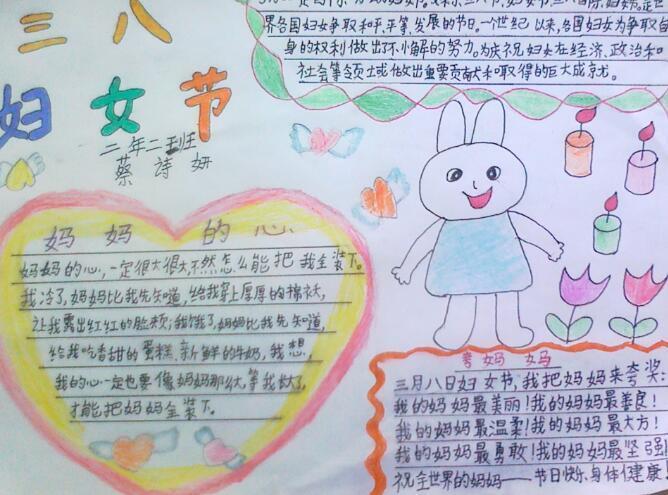 三八
妇女节
二年二班
蔡诗妍
界各国妇女争取和平、平等、发展的节日。一世纪以来,各国妇女为争取自
身的权利做出了不小解的努力。为庆祝妇女在经济、政治和
社会等领土或做出重要贡献和取得的巨大成就。
妈妈的心
妈妈的心,一定很大很大,不然怎么能把我全装下。
我冷了,妈妈比我先知道,给我穿上厚厚的棉袄,
让我露出红红的脸颊;我饿了,妈妈比我先知道,
给我吃香甜的蛋糕、新鲜的牛奶,我想,
我的心一定也要像妈妈那么大,等我大了,
才能把妈妈全装下。
夸妈妈
三月八日妇女节,我把妈妈来夸奖:
我的妈妈最美丽!我的妈妈最善良!
我的妈妈最温柔!我的妈妈最大方!
我的妈妈最勇敢!我的妈妈最坚强!
祝全世界的妈妈——节日快乐、身体健康!